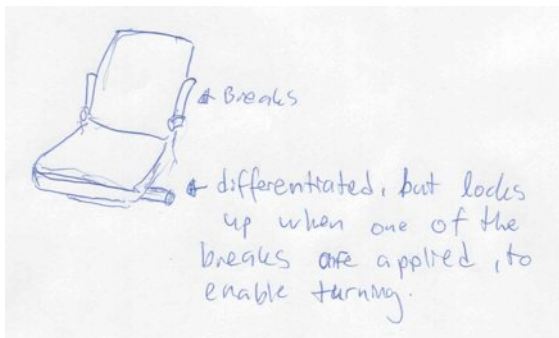 Breaks
differentiated, but locks
up when one of the
breaks are applied, to
enable turning.